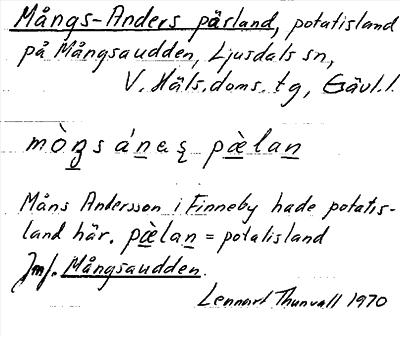 Mångs-Anders pärland, potatisland
på Mångsaudden, Ljusdals sn,
V. Häls. doms. tg, Gävl. l.
mòŋs ánəʂ pæ̀lan
Måns Andersson i Finneby hade potatis-
land här. pæ̀lan = potatisland
Jmf. Mångsaudden.
Lennart Thunvall 1970